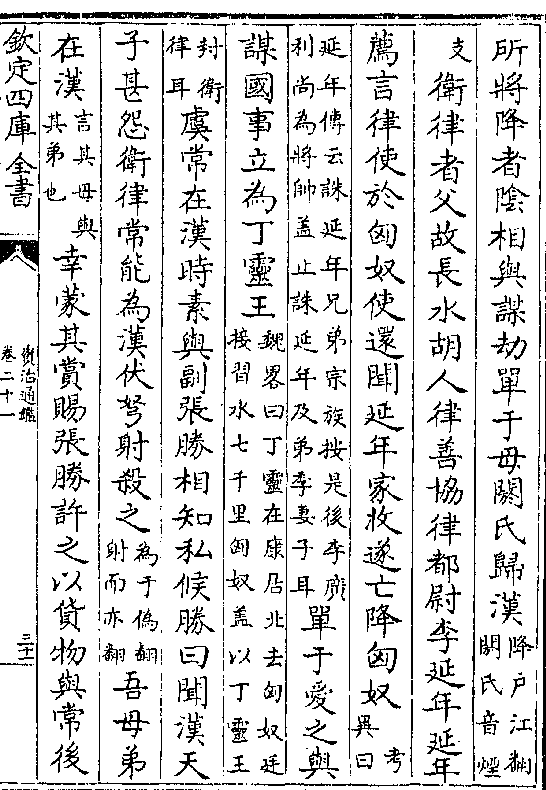 所將降者陰相與謀劫單于母閼氏歸漢降戶江翻閼氏音煙
支衛律者父故長水胡人律善協律都尉李延年延年
薦言律使於匈奴使還聞延年家收遂亡降匈奴考異曰
延年傳云誅延年兄弟宗族按是後李廣利尚為將帥蓋止誅延年及弟季妻子耳單于愛之與
謀國事立為丁靈王魏畧曰丁靈在康居北去匈奴廷接習水七千里匈奴蓋以丁靈王
封衛律耳虞常在漢時素與副張勝相知私候勝曰聞漢天
子甚怨衛律常能為漢伏弩射殺之為于偽翻射而亦翻吾母弟
在漢言其母與其弟也幸蒙其賞賜張勝許之以貨物與常後
欽定四庫全書
資治通鑑
卷二十一
三十一